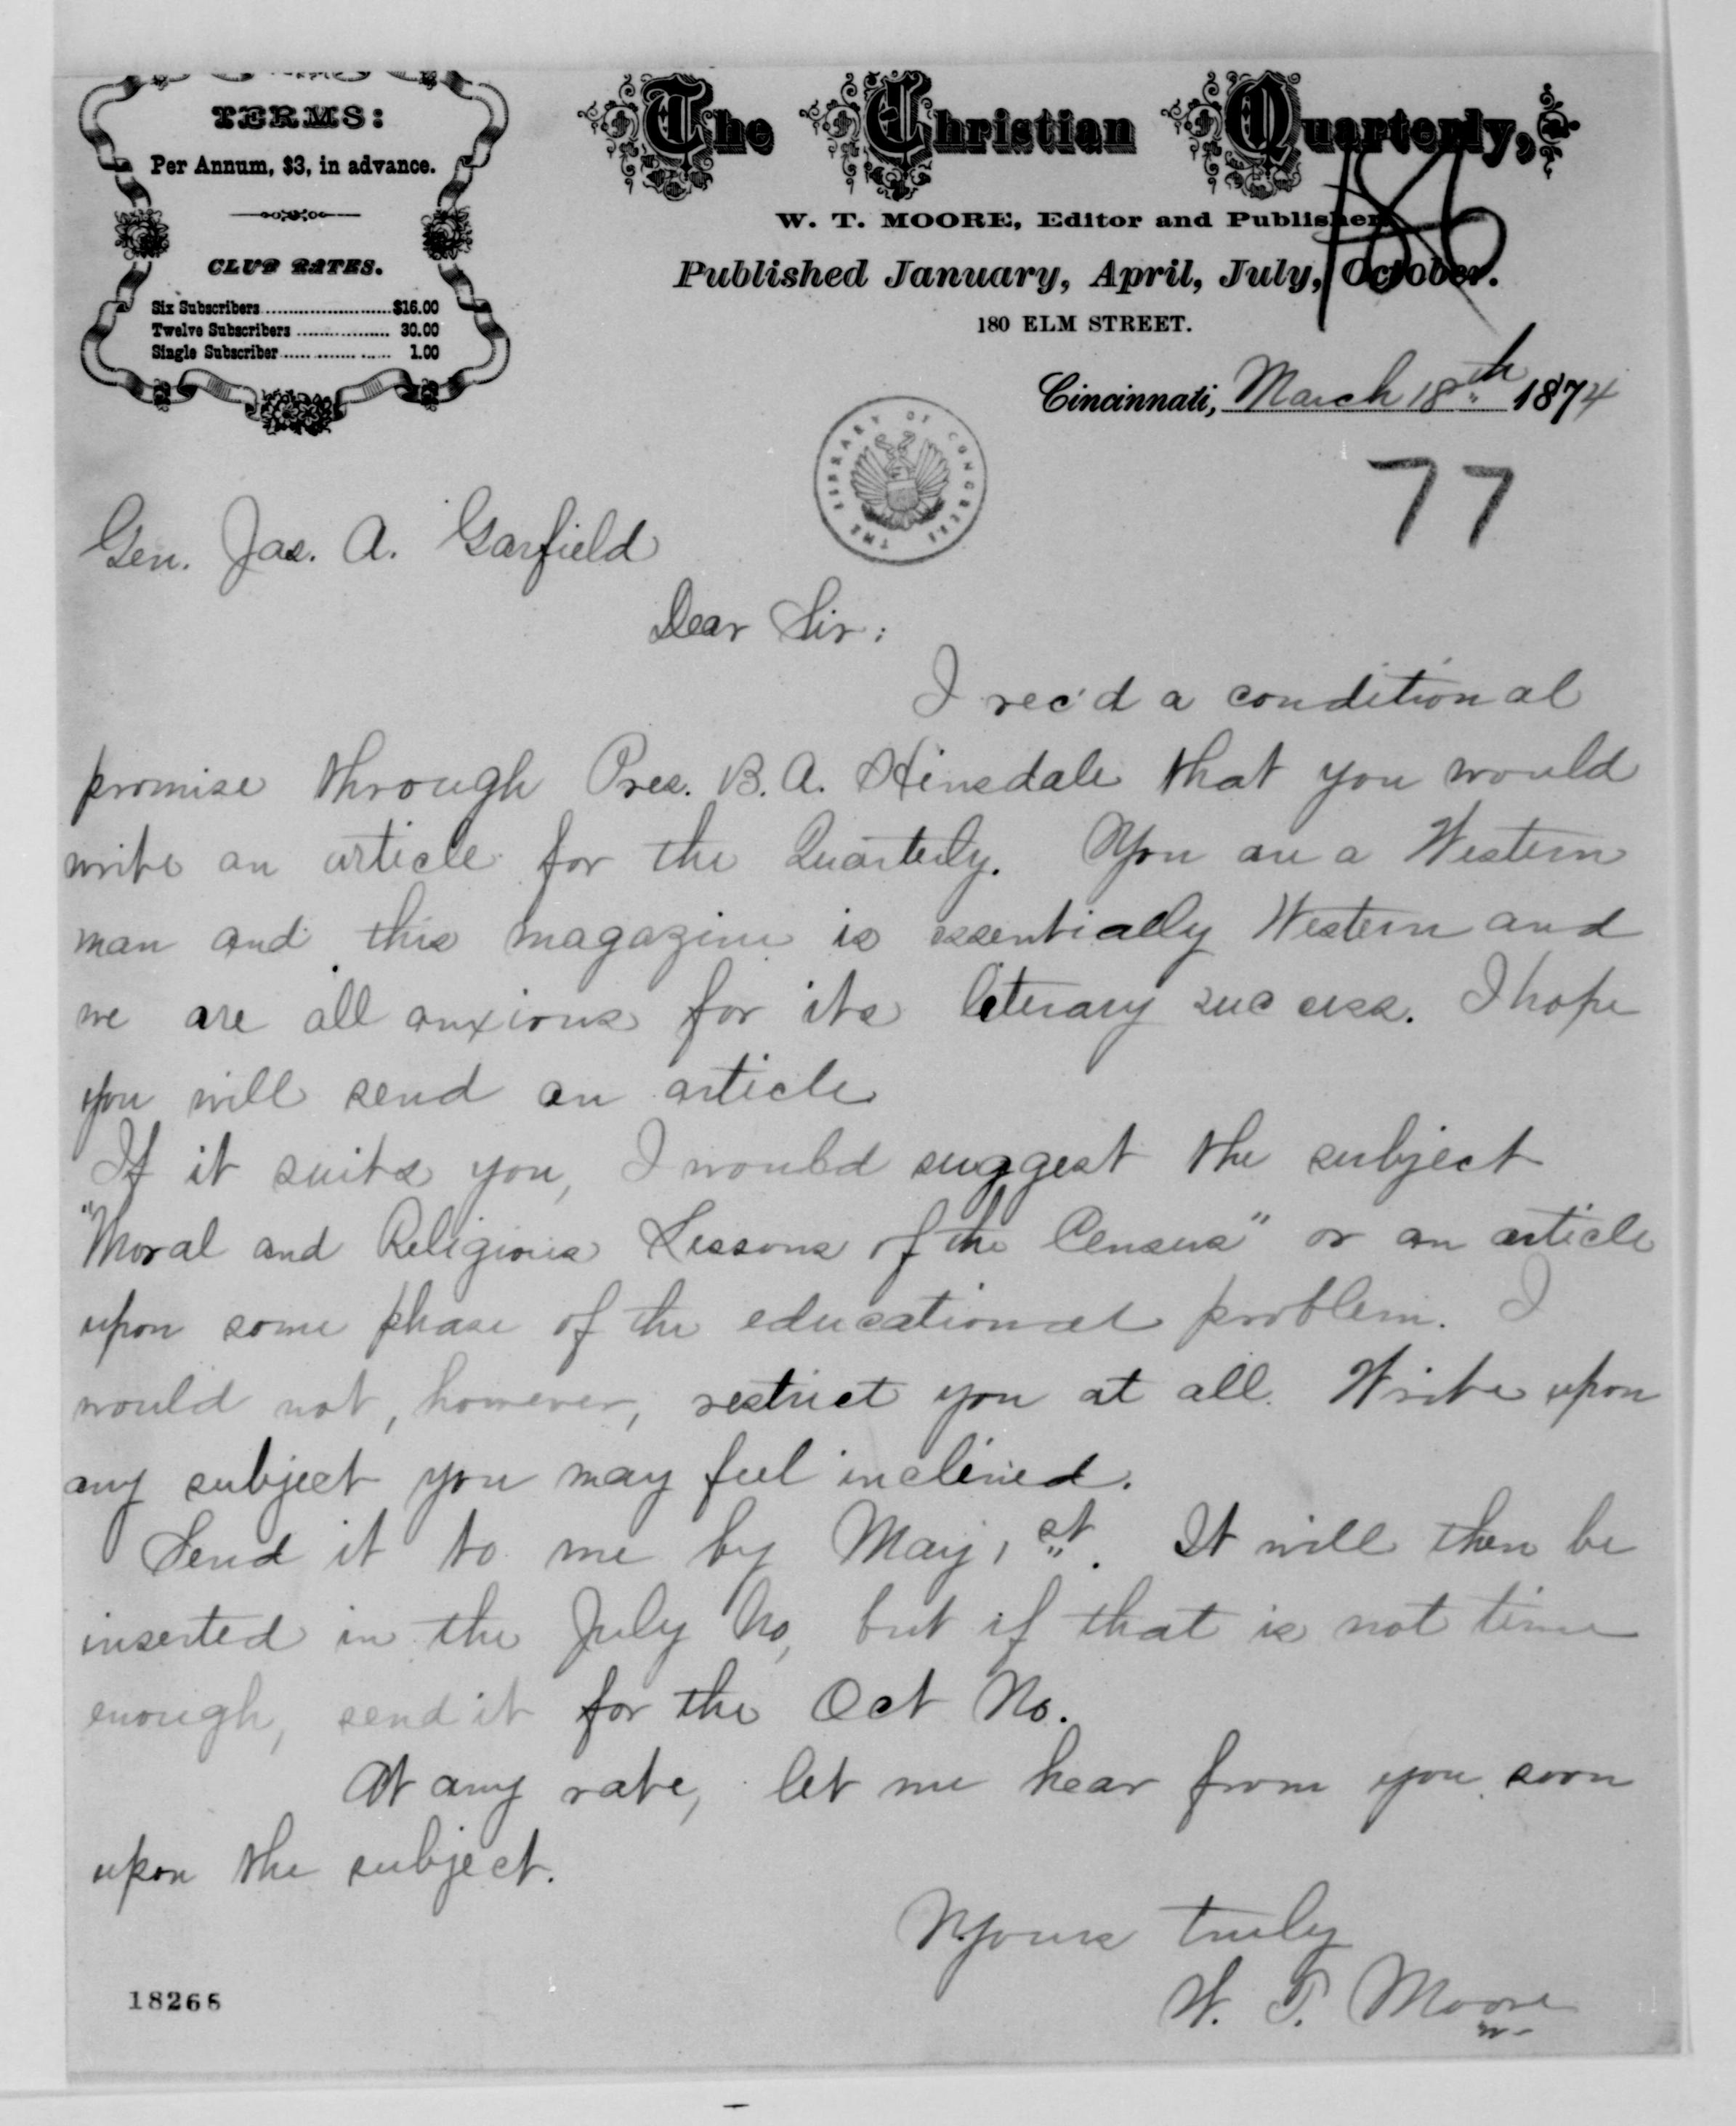 TERMS:
Per Annum, $3, in advance.
CLUB RATES.
Six Subscribers........................$16.00
Twelve Subscribers ................. 30.00
Single Subscriber.................... 1.00
The Christian Quarterly,
W. T. MOORE, Editor and Publisher.
Published January, April, July, October.
180 ELM STREET.
186
Cincinnati, March 18th 1874
77
THE LIBRARY OF CONGRESS
Gen. Jas. A. Garfield
Dear Sir:
I rec'd a conditional
promise through Pres. B. A. Hinsdale that you would
write an article for the Quarterly. You are a Western
man and this magazine is essentially Western and
we are all anxious for its literary success. I hope
you will send an article
If it suits you, I would suggest the subject
"Moral and Religious Lessons of the Census" or an article
upon some phase of the educational problem. I
would not, however, restrict you at all. Write upon
any subject you may feel inclined.
Send it to me by May 1st. It will then be
inserted in the July No, but if that is not time
enough, send it for the Oct No.
At any rate, let me hear from you soon
upon the subject.
Yours truly
W. T. Moore
18266